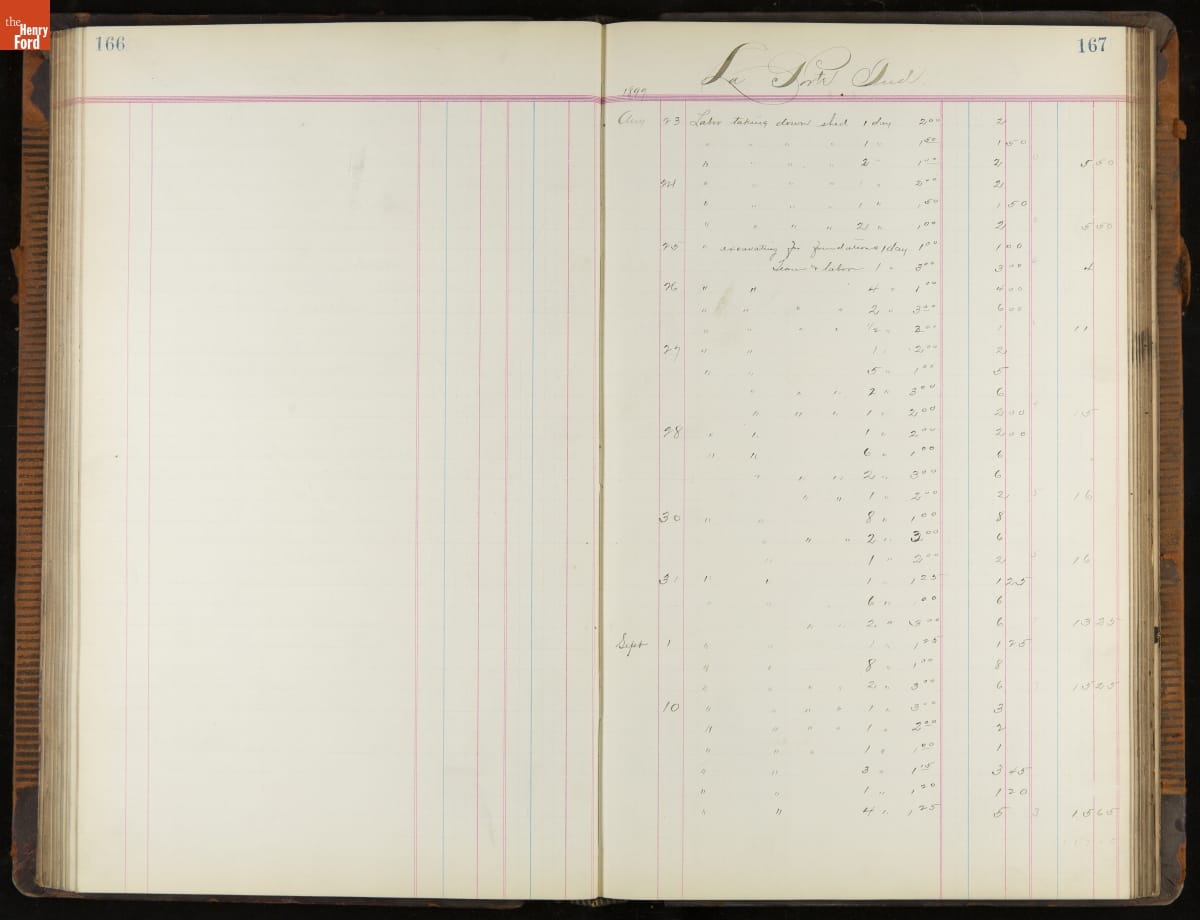 the Henry Ford
166
167
La Porte Ind
1899
Aug 23 Labor taking down shed 1 day 2.00 2
" " " " 1 " 1.50 1 50
" " " " 2 " 1.00 2 5 50
24 " " " " 1 " 2.00 2
" " " " 1 " 1.50 1 50
" " " " 2 " 1.00 2 5 50
25 " excavating for foundations 1 day 1.00 1 00
Team & labor 1 " 3.00 3 00 4
26 " " 4 " 1.00 4 00
" " " " 2 " 3.00 6 00
" " " " 1/2 " 2.00 1 11
27 " " 1 " 2.00 2
" " 5 " 1.00 5
" " " 2 " 3.00 6
" " " 1 " 2.00 2 00 15
28 " " 1 " 2.00 2 00
" " 6 " 1.00 6
" " " 2 " 3.00 6
" " 1 " 2.00 2 16
30 " " 8 " 1.00 8
" " " 2 " 3.00 6
" 1 " 2.00 2 16
31 " " 1 " 1.25 1 25
" " 6 " 1.00 6
" " 2 " 3.00 6 13 25
Sept 1 " " 1 " 1.25 1 25
" " 8 " 1.00 8
" " " " 2 " 3.00 6 15 25
10 " " " 1 " 3.00 3
" " " " 1 " 2.00 2
" " " 1 " 1.00 1
" " 3 " 1.15 3 45
" " 1 " 1.20 1 20
" " 4 " 1.25 5 15 65